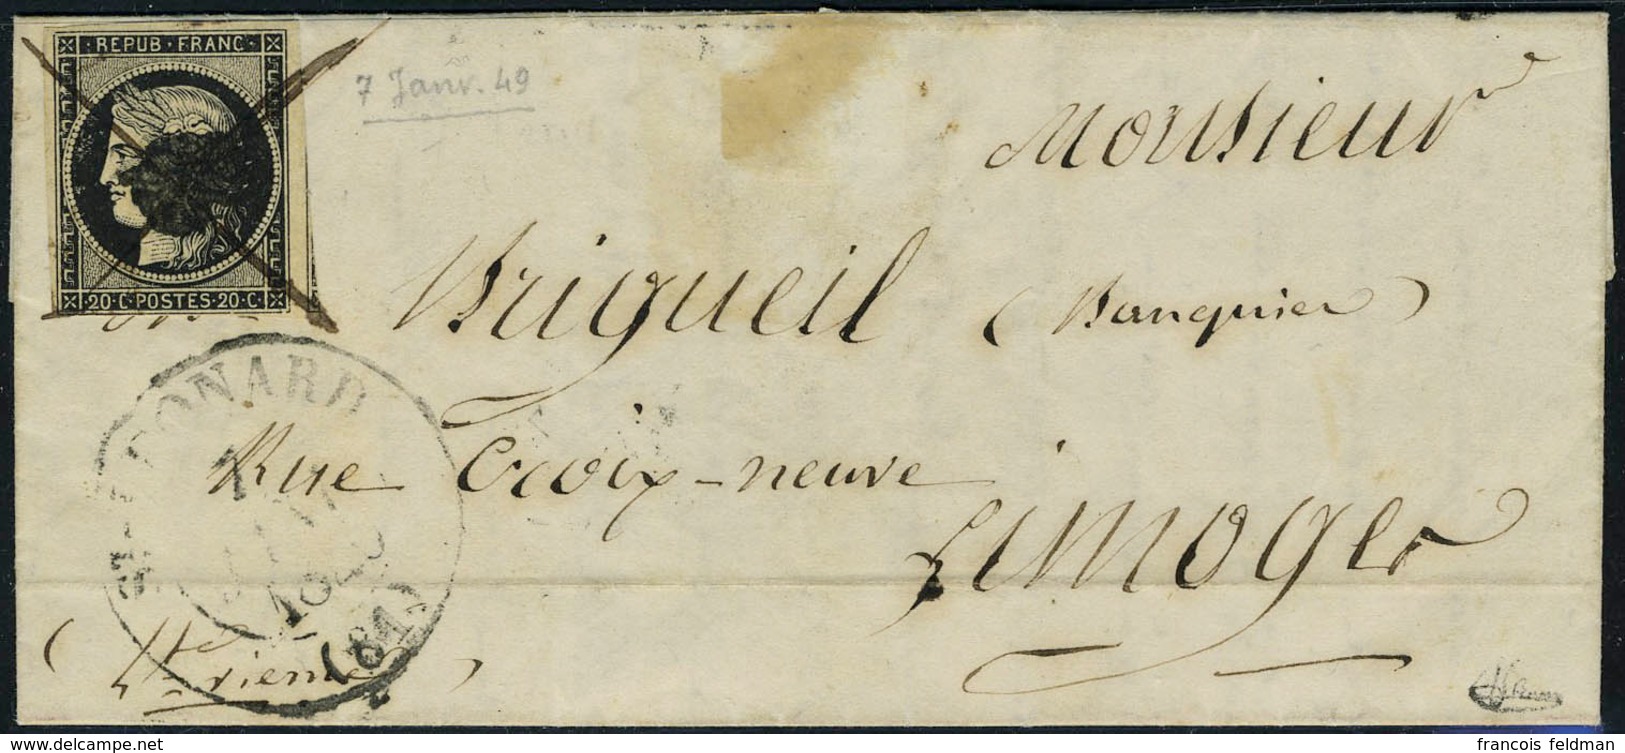 REPUB · FRANC ·
20 · C · POSTES · 20 · C ·
7 Janv. 49
Monsieur
Brigueil ( Banquier )
Rue Croix-neuve
Limoges
( Hte vienne )
ST-LEONARD
7
JANV
(81)
www.delcampe.net
francois feldman